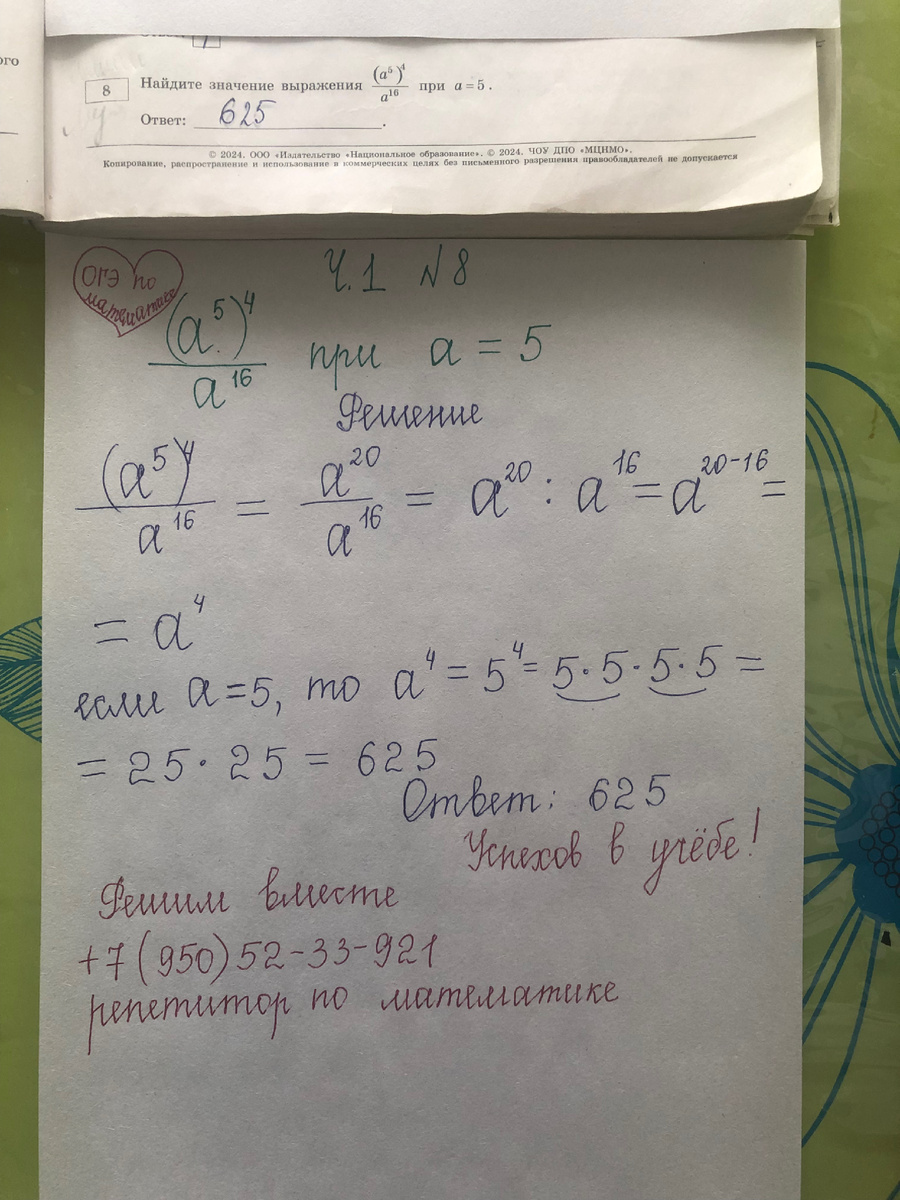 ого
8 Найдите значение выражения (a⁵)⁴/a¹⁶ при a = 5 .
Ответ: 625 .
© 2024. ООО «Издательство «Национальное образование». © 2024. ЧОУ ДПО «МЦНМО».
Копирование, распространение и использование в коммерческих целях без письменного разрешения правообладателей не допускается
ОГЭ по
математике
Ч.1 №8
(a⁵)⁴/a¹⁶ при a = 5
Решение
(a⁵)⁴/a¹⁶ = a²⁰/a¹⁶ = a²⁰ : a¹⁶ = a²⁰⁻¹⁶ =
= a⁴
если a = 5, то a⁴ = 5⁴ = 5·5·5·5 =
= 25 · 25 = 625
Ответ: 625
Успехов в учёбе!
Решим вместе
+7(950)52-33-921
репетитор по математике